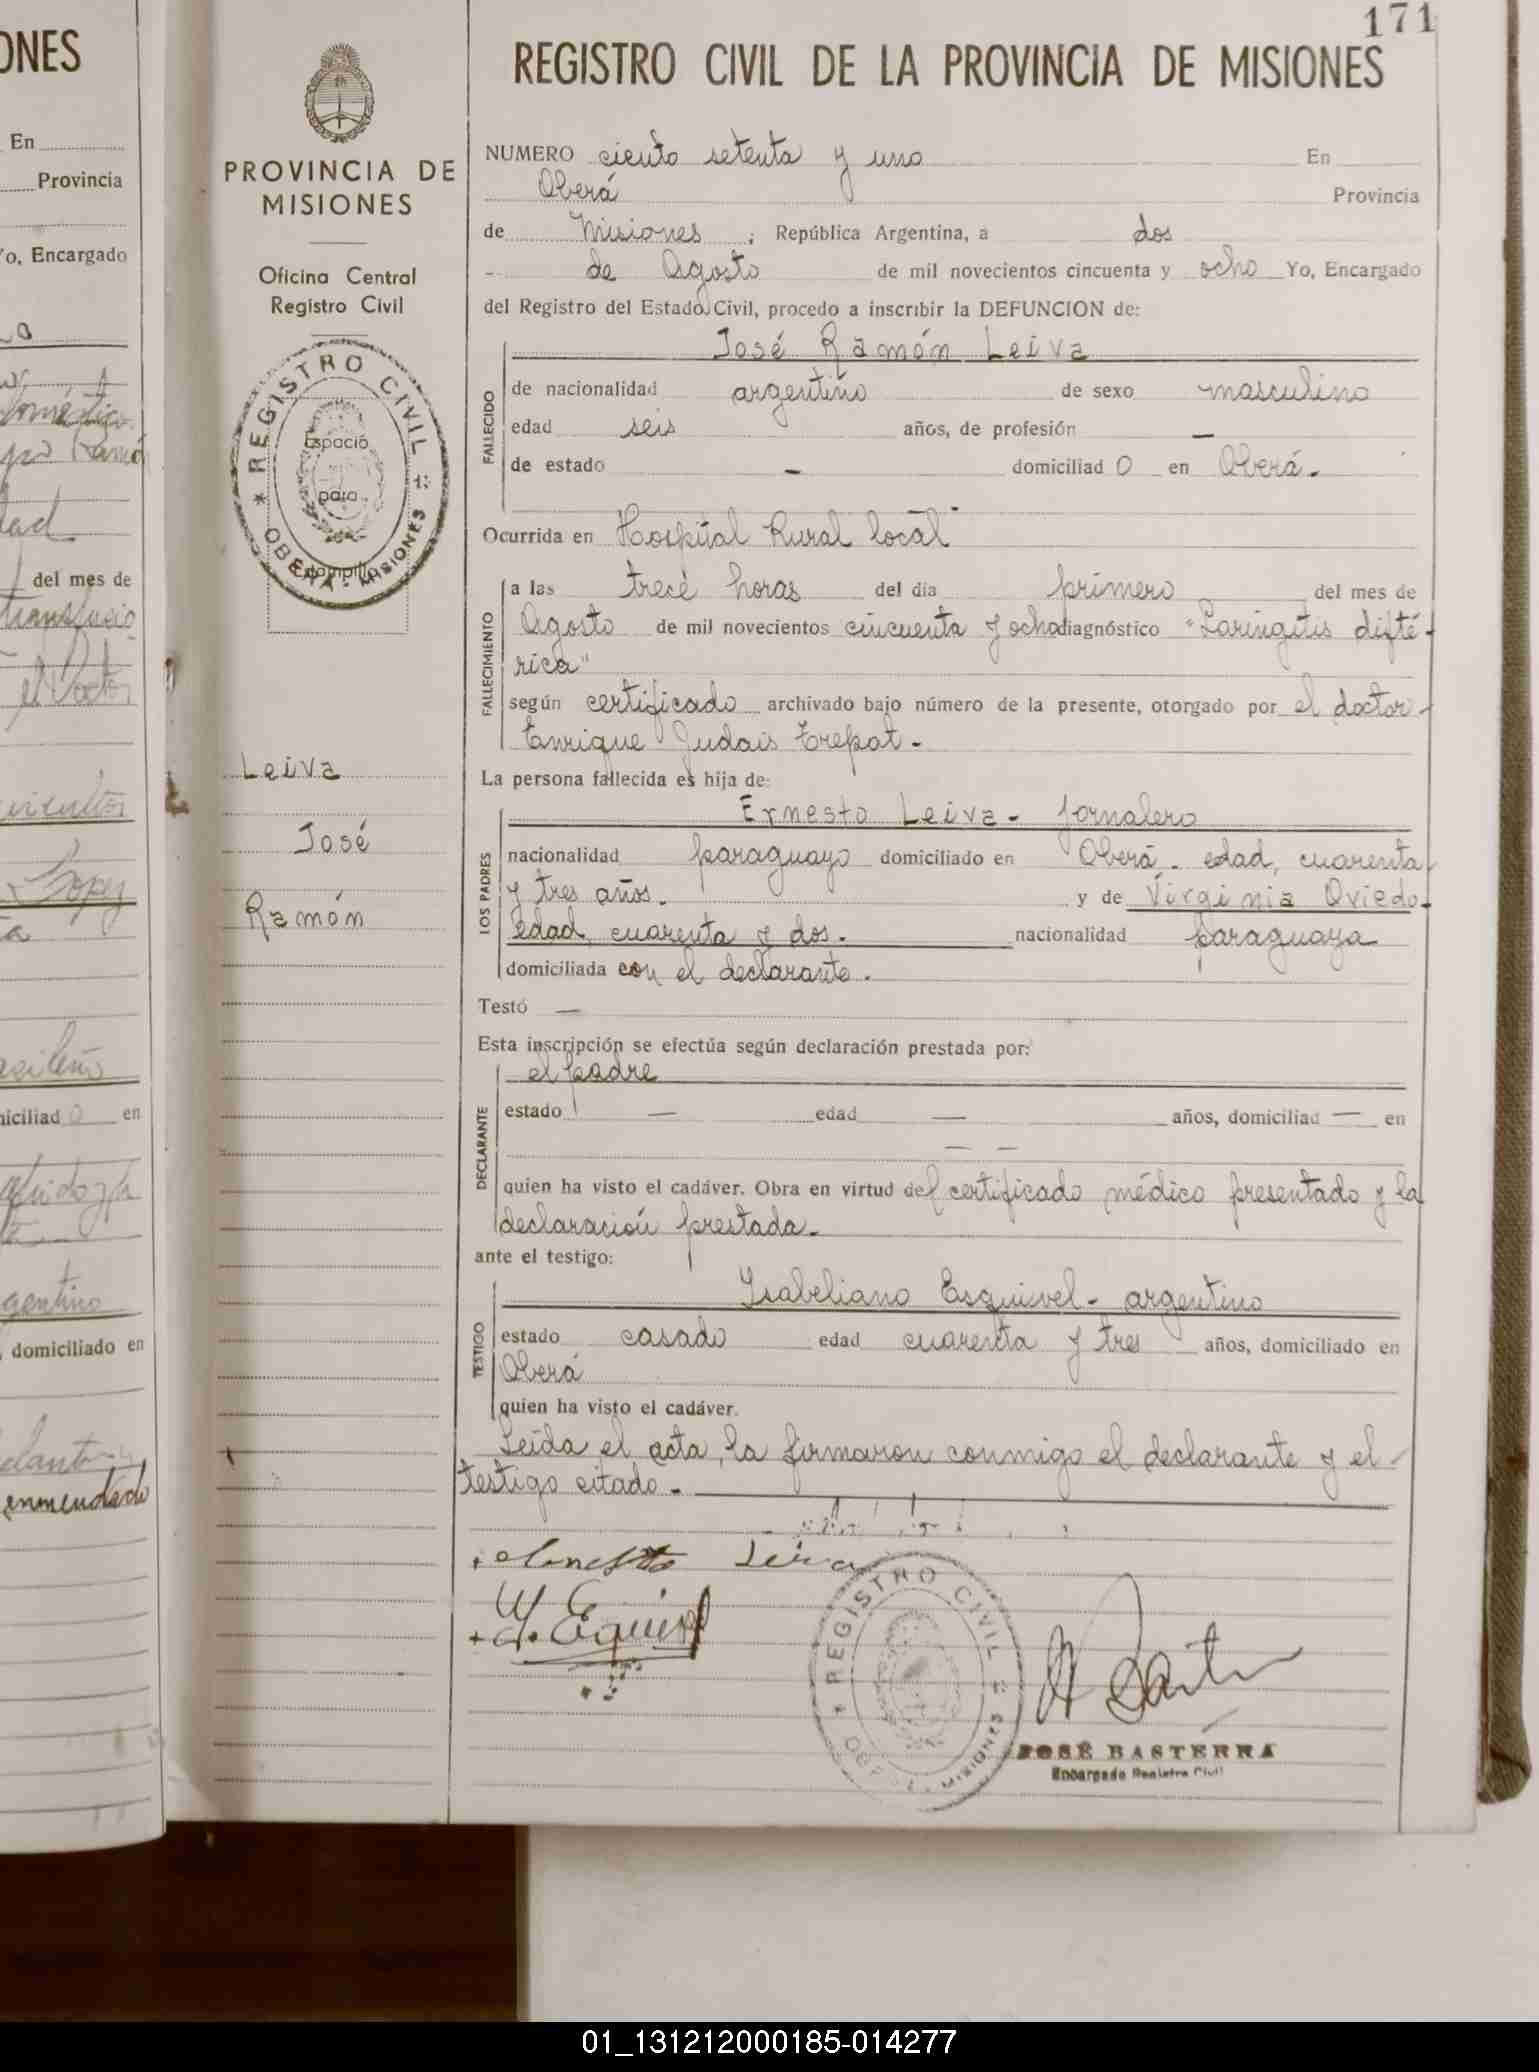 ONES
En
Provincia
Yo, Encargado
del mes de
el Doctor
Lopez
domiciliad o en
gentino
, domiciliado en
enmendado
PROVINCIA DE
MISIONES
Oficina Central
Registro Civil
* REGISTRO CIVIL *
OBERA - MISIONES
Espacio
para
Estampilla
Leiva
José
Ramón
171
REGISTRO CIVIL DE LA PROVINCIA DE MISIONES
NUMERO ciento setenta y uno En
Oberá Provincia
de Misiones ; República Argentina, a dos
de Agosto de mil novecientos cincuenta y ocho Yo, Encargado
del Registro del Estado Civil, procedo a inscribir la DEFUNCION de:
José Ramón Leiva
FALLECIDO
de nacionalidad argentino de sexo masculino
edad seis años, de profesión —
de estado - domiciliad o en Oberá.
Ocurrida en Hospital Rural local
FALLECIMIENTO
a las trece horas del día primero del mes de
Agosto de mil novecientos cincuenta y ocho diagnóstico "Laringitis difté-
rica"
según certificado archivado bajo número de la presente, otorgado por el doctor
Enrique Judais Trepat.
La persona fallecida es hija de:
LOS PADRES
Ernesto Leiva - jornalero
nacionalidad paraguayo domiciliado en Oberá - edad, cuarenta
y tres años. y de Virginia Oviedo.
edad, cuarenta y dos. nacionalidad paraguaya
domiciliada con el declarante.
Testó —
Esta inscripción se efectúa según declaración prestada por:
DECLARANTE
el padre
estado — edad — años, domiciliad — en
— —
quien ha visto el cadáver. Obra en virtud del certificado médico presentado y la
declaración prestada.
ante el testigo:
TESTIGO
Isabeliano Esquivel - argentino
estado casado edad cuarenta y tres años, domiciliado en
Oberá
quien ha visto el cadáver.
Leída el acta, la firmaron conmigo el declarante y el
testigo citado.
Leiva
* REGISTRO CIVIL *
MISIONES
JOSÉ BASTERRA
Encargado Registro Civil
01_131212000185-014277